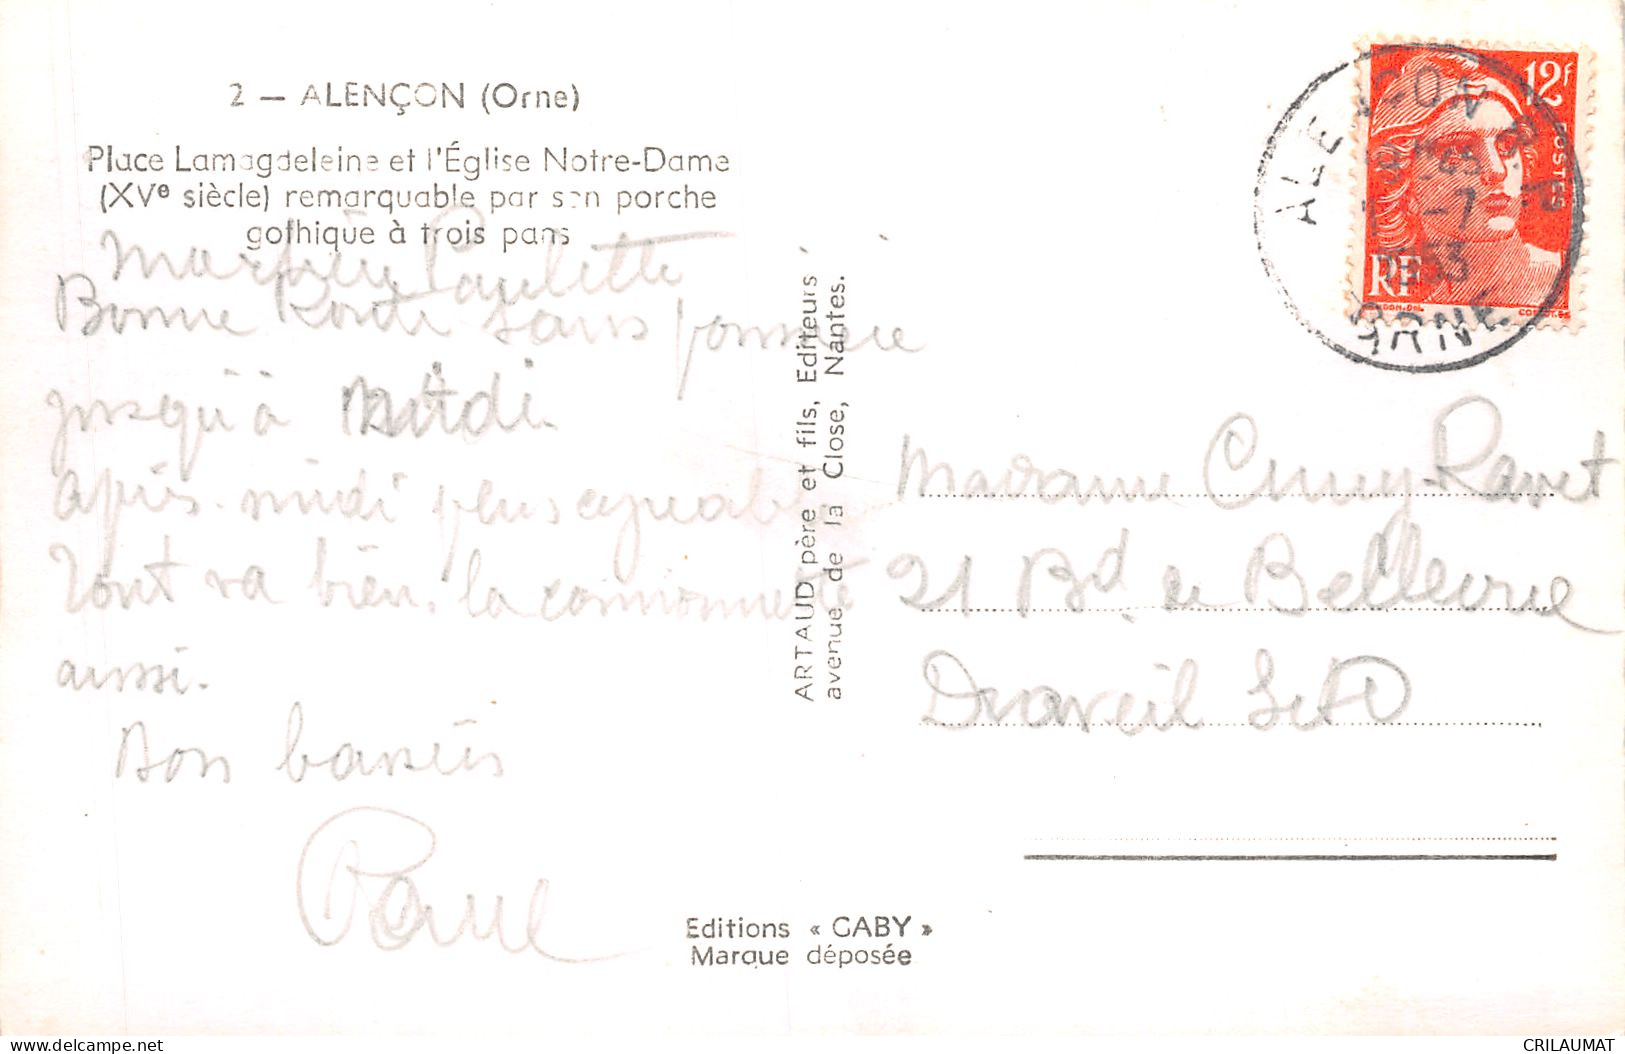 2 — ALENÇON (Orne)
Place Lamagdeleine et l'Église Notre-Dame
(XVe siècle) remarquable par son porche
gothique à trois pans
Paulette
Bonne Route sans poussière
jusqu'à Midi.
après-midi plus agréable
Tout va bien. la camionnette
aussi.
Bon baisers
ARTAUD père et fils, Editeurs
avenue de la Close, Nantes.
Editions « GABY »
Marque déposée
12f
POSTES
RF
ALENÇON
-7
1953
ORNE
Madame Cuny-Ravet
21 Bd de Bellevue
Draveil S et O
CRILAUMAT
delcampe.net